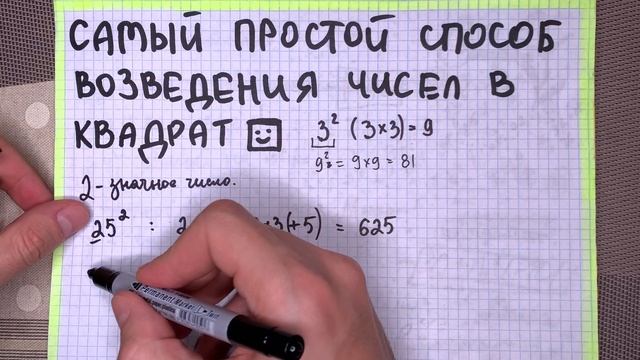 САМЫЙ ПРОСТОЙ СПОСОБ
ВОЗВЕДЕНИЯ ЧИСЕЛ В
КВАДРАТ 3² (3×3)=9
9² = 9×9 = 81
2-значное число.
25² : 2 ×3(+5) = 625
Permanent Marker